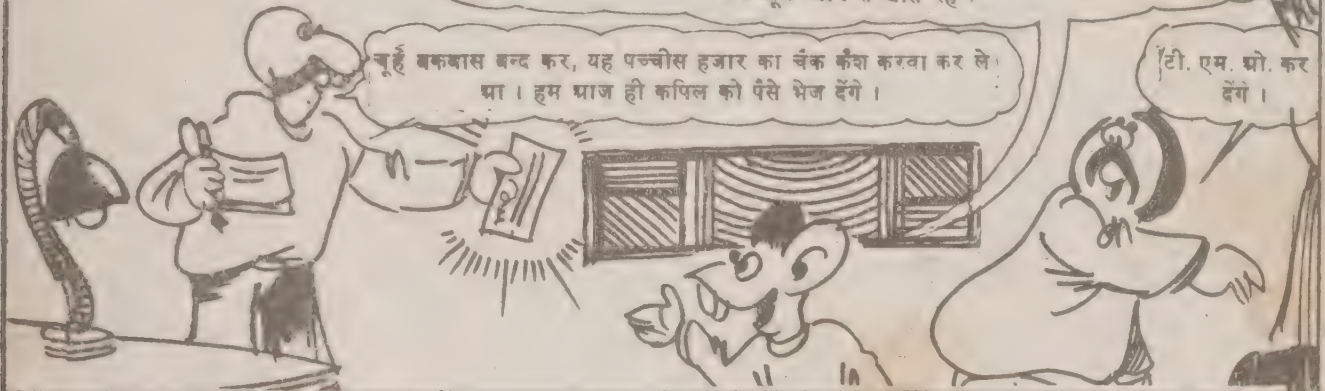 चूहे बकवास बन्द कर, यह पच्चीस हजार का चैक कैश करवा कर ले
आ । हम आज ही कपिल को पैसे भेज देंगे ।
टी. एम. ओ. कर
देंगे ।